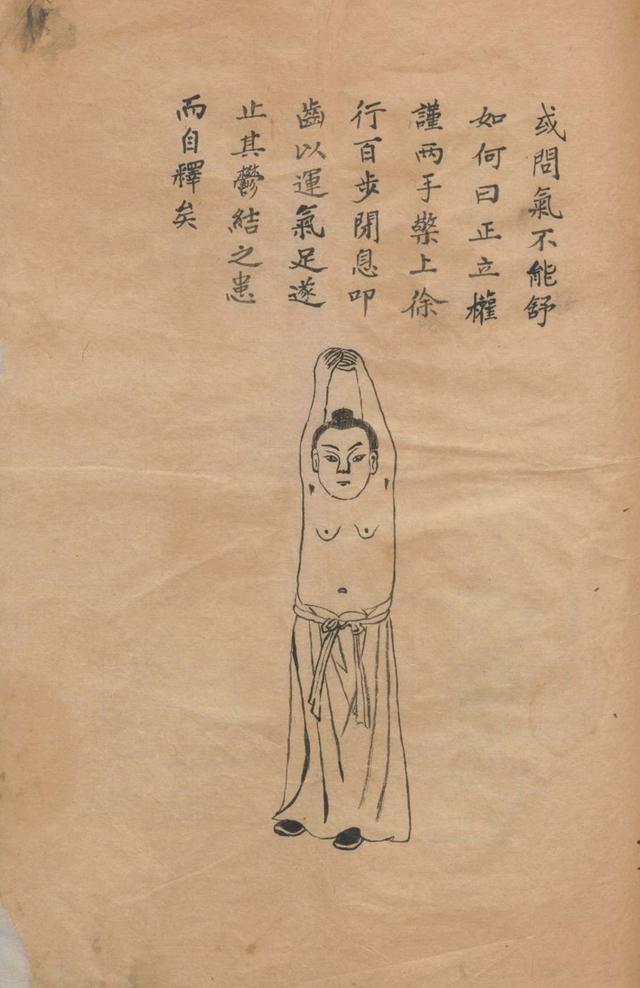 或問氣不能舒
如何曰正立權
謹两手檠上徐
行百步閉息叩
齒以運氣足遂
止其鬱結之患
而自釋矣